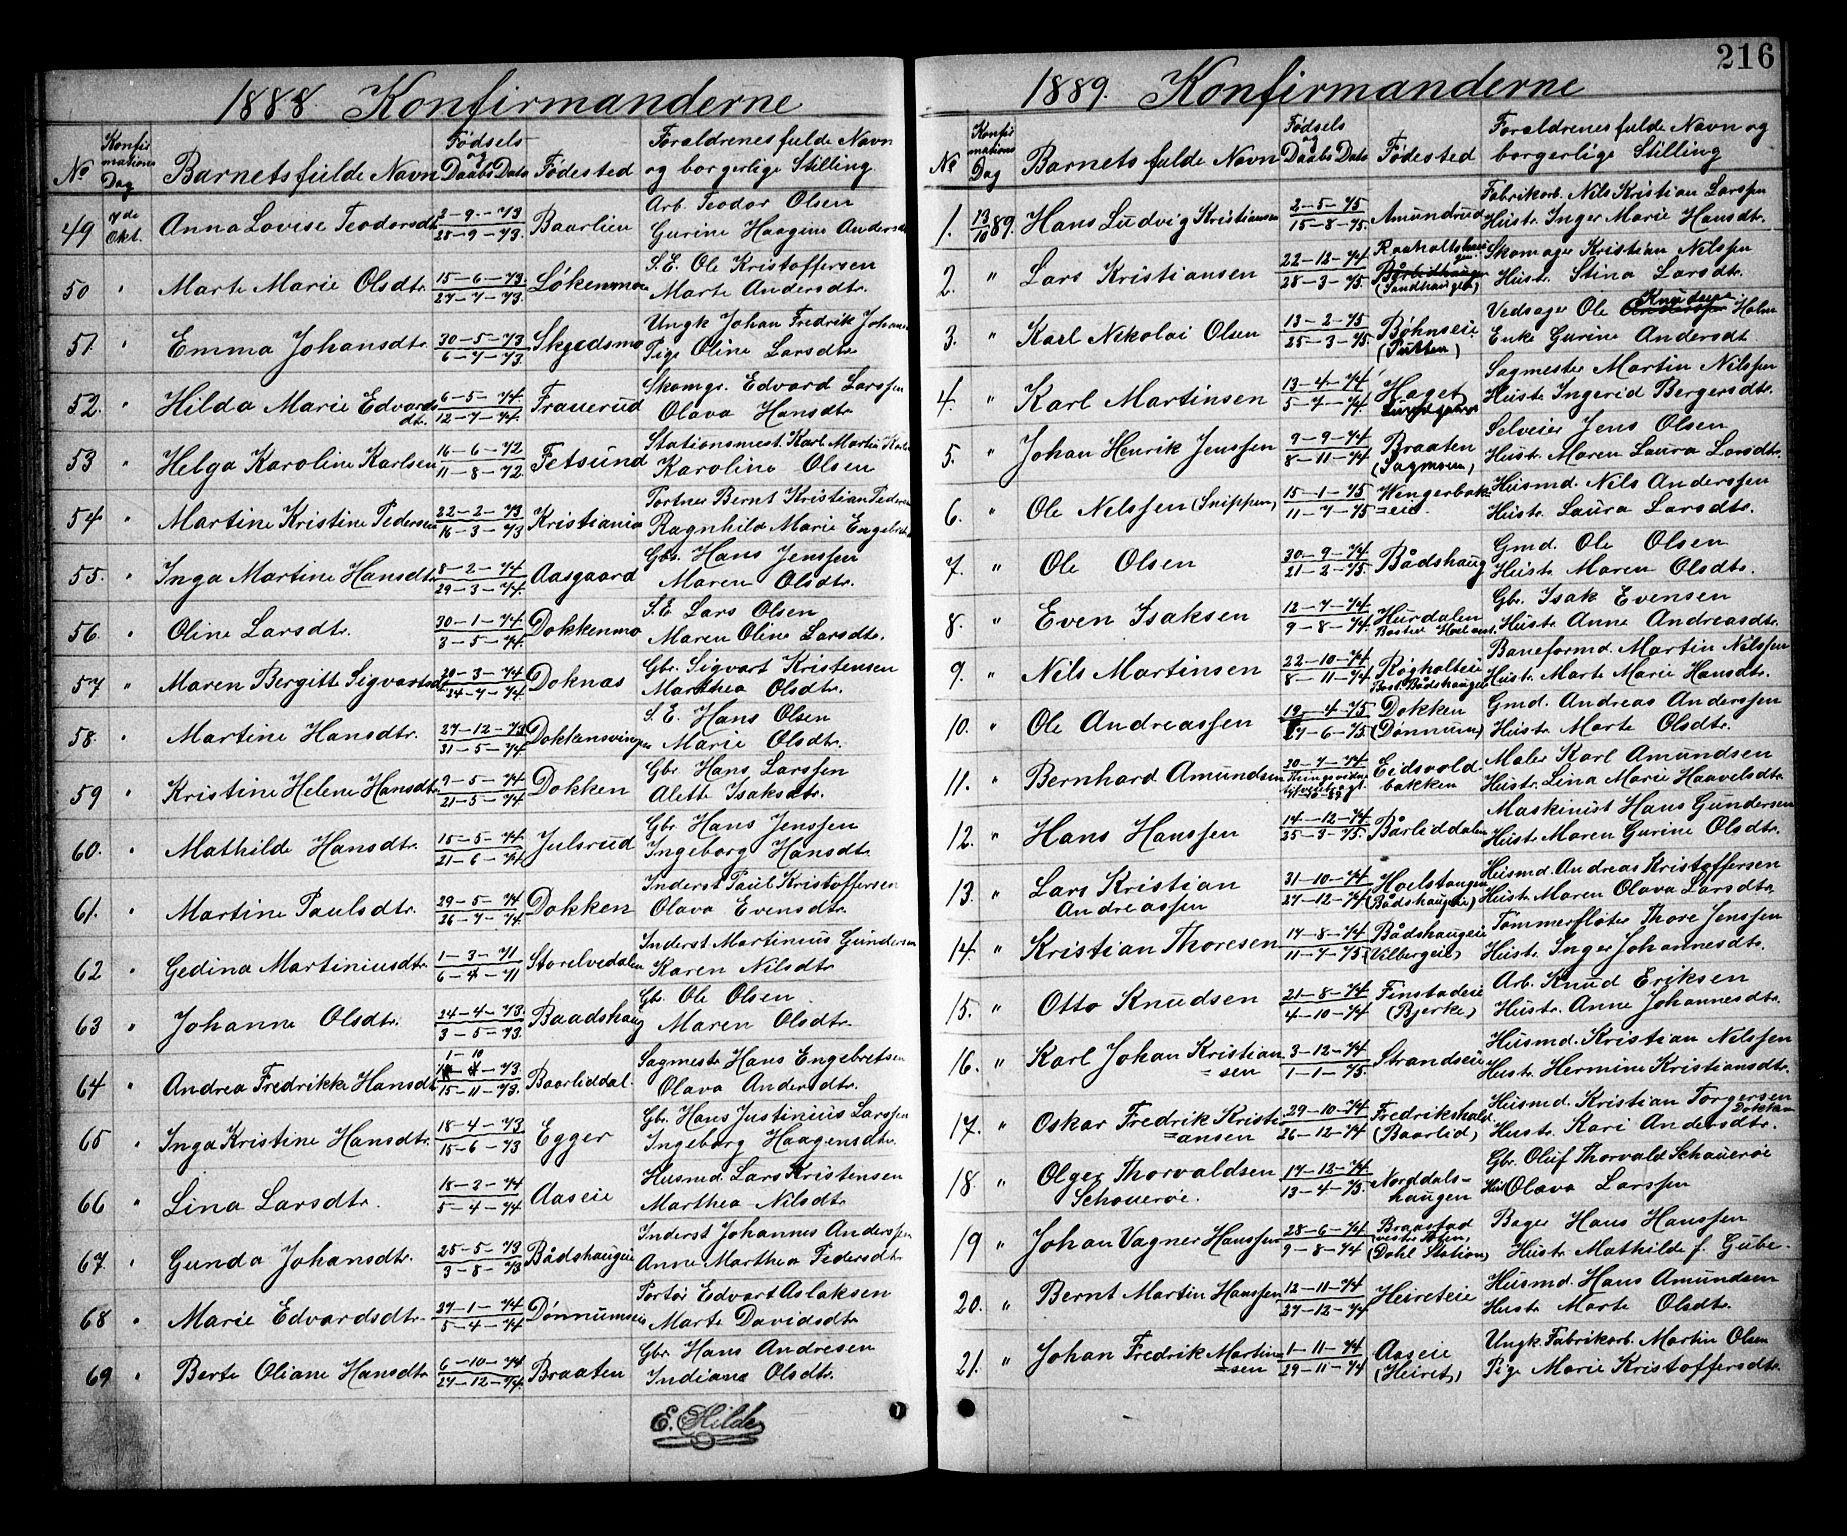 1888. Konfirmanderne
No Konfirmations Dag Barnets fulde Navn Fødsels og Daabs Data Fødested Foraldrenes fulde Navn og borgerlige Stilling
49 7de Okt. Anna Lovise Teodorsdt. 2-9-73 Baarlien Arb. Teodor Olsen
28-9-73. Gurine Haagine Anders
50 " Marte Marie Olsdtr. 15-6-73 Løkenmo S.E. Ole Kristoffersen
27-7-73. Marte Andersdtr.
51. " Emma Johansdtr. 30-5-73 Skjedsmo Ungk Johan Fredrik Johan
6-7-73. Pige Oline Larsdtr.
52. " Hilda Marie Edvards 6-5-74 Frauerud Skomgr. Edvard Larssen
dt. 12-7-74. Olava Hansdtr.
53 " Helga Karoline Karlsen 16-6-72 Fetsund Stationsmest. Karl Martin Karl
11-8-72. Karoline Olsen
54 " Martine Kristine Pedersen 22-2-73 Kristiania Portner Bernt Kristian Peders
16-3-73 Ragnhild Marie Engebr
55. " Inga Martine Hansdtr. 8-2-74 Aasgaard Gbr. Hans Jenssen
29-3-74. Maren Olsdtr.
56. " Oline Larsdtr. 30-1-74 Dokkenmo S.E. Lars Olsen
3-5-74. Maren Oline Larsdtr.
57 " Maren Bergitte Sigvartsdt 20-3-74 Doknas Gbr. Sigvart Kristensen
24-4-74. Marthea Olsdtr.
58. " Martine Hansdtr. 27-12-73 Dokkensvingen S.E. Hans Olsen
31-5-74. Marie Olsdtr.
59 " Kristine Helene Hansdtr. 9-5-74 Dokken Gbr. Hans Larssen
21-5-74 Alette Isaksdtr.
60. " Mathilde Hansdtr. 15-5-74 Julsrud Gbr. Hans Jenssen
21-6-74 Ingeborg Hansdtr.
61. " Martine Paulsdtr. 29-5-74 Dokken Inderst Paul Kristoffersen
26-7-74. Olava Evensdtr.
62 " Gedina Martiniusdtr. 1-3-71 Storelvedalen Inderst Martinius Gundersen
6-4-71 Karen Nilsdtr.
63 " Johanne Olsdtr. 24-4-73. Baadshaug Gbr. Ole Olsen
3-5-73. Maren Olsdtr.
1-10
64 " Andrea Fredrikke Hansdtr -73. Baarliddal. Sagmester Hans Engebretsen
15-11-73. Olava Andersdtr.
65 " Inga Kristine Hansdtr. 18-4-73 Egger Gbr. Hans Justinius Larssen
15-6-73 Ingeborg Haagensdtr.
66 " Lina Larsdtr. 18-2-74 Aaseie Husmd. Lars Kristensen
5-4-74 Marthea Nilsdtr.
67. " Gunda Johansdtr. 25-5-73 Bådshaugeie Inderst Johannes Anderssen
3-8-73 Anne Marthea Pedersdtr.
68 " Marie Edvardsdtr. 27-1-74 Dønnumseie Portør Edvart Aslaksen
5-4-74 Marte Davidsdtr.
69 " Berte Oliane Hansdtr. 6-10-74 Braaten Gbr. Hans Andresen
27-12-74. Indiane Olsdtr.
E. Hilde
216
1889. Konfirmanderne
No Konfirmations Dag Barnets fulde Navn Fødsels og Daabs Data Fødested Foraldrenes fulde Navn og borgerlige Stilling
1. 13/10 89. Hans Ludvig Kristiansen 2-5-75 Amundrud Fabrikarb. Nils Kristian Larssen
15-8-75. Hustr. Inger Marie Hansdtr.
2. " Lars Kristiansen 22-12-74 Raaholtshau Skomager Kristian Nilssen
28-3-75. (Sandhaugen) Hustr. Stina Larsdtr.
3. " Karl Nikolai Olsen 13-2-75 Bøhnseie Vedsager Ole Knudsen Holm
25-3-75 (Putten) Enke Gurine Andersdt
4. " Karl Martinsen 13-4-74 Haget Sagmester Martin Nilssen
5-7-74. Hustr. Ingerid Bergersdtr.
5. " Johan Henrik Jenssen 9-9-74 Braaten Selveier Jens Olsen
8-11-74 (Sagmoen) Hustr. Maren Laura Larsdtr.
6. " Ole Nilssen (Snippen) 15-1-75 Wengerbak Husmd. Nils Anderssen
11-7-75 =eie Hustr. Laura Larsdtr.
7. " Ole Olsen 30-9-74 Bådshaug Gmd. Ole Olsen
21-2-75. Hustr. Maren Olsdtr.
8. " Even Isaksen 12-7-74 Hurdalen Gbr. Isak Evensen
9-8-74. Hustr. Anne Andreasdtr.
9. " Nils Martinsen 22-10-74 Røgholteie Baneformd. Martin Nilssen
8-11-74 Bost. Bådshaugen Hustr. Marte Marie Hansdtr.
10. " Ole Andreassen 19-4-75 Dokken Gmd. Andreas Anderssen
27-6-75. (Dønnum) Hustr. Marte Olsdtr.
11. " Bernhard Amundsen 30-7-74 Eidsvold Maler Karl Amundsen
bakken Hustr. Lina Marie Haavelsdtr.
12. " Hans Hanssen 14-12-74 Bårliddalen Maskinist Hans Gundersen
25-3-75. Hustr. Maren Gurine Olsdtr.
13. " Lars Kristian 31-10-74 Hoelstangen Husmd. Andreas Kristoffersen
Andreassen 27-12-74 (Bådshaugeie) Hustr. Maren Olava Larsdtr.
14. " Kristian Thoresen 17-8-74 Bådshaugeie Tømmerfløter Thore Jenssen
11-7-75. (Vilbergeie) Hustr. Inger Johannesdtr.
15. " Otto Knudsen 21-8-74 Finstadeie Arb. Knud Eriksen
4-10-74 (Bjerke) Hustr. Anne Johannesdtr.
16. " Karl Johan Kristian 3-12-74 Strandseie Husmd. Kristian Nilssen
=sen 1-1-75. Hustr. Hermine Kristiansdtr.
17. " Oskar Fredrik Kristi 29-10-74 Fredrikshald Husmd. Kristian Torgersen Dokken
=ansen 26-12-74 (Baarlid) Hustr. Kari Andersdtr.
18. " Olger Thorvaldsen 17-12-74 Norddals- Gbr. Oluf Thorvald Schauerøe
Schouerøe. 13-4-75. haugen Hus Olava Larssen
19 " Johan Vagner Hanssen 28-6-74 Braastad Bager Hans Hanssen
vestre Toten,
9-8-74 (Dohl Station) Hustr. Mathilde f. Gube.
20. " Bernt Martin Hanssen 12-11-74 Heireteie Husmd. Hans Amundsen
27-12-74 Hustr. Marte Olsdtr.
21. " Johan Fredrik Martin 1-11-74 Aaseie Ungk. Fabrikarb. Martin Olsen
=sen 29-11-74 (Heiret) Pige Marie Kristoffersdtr.